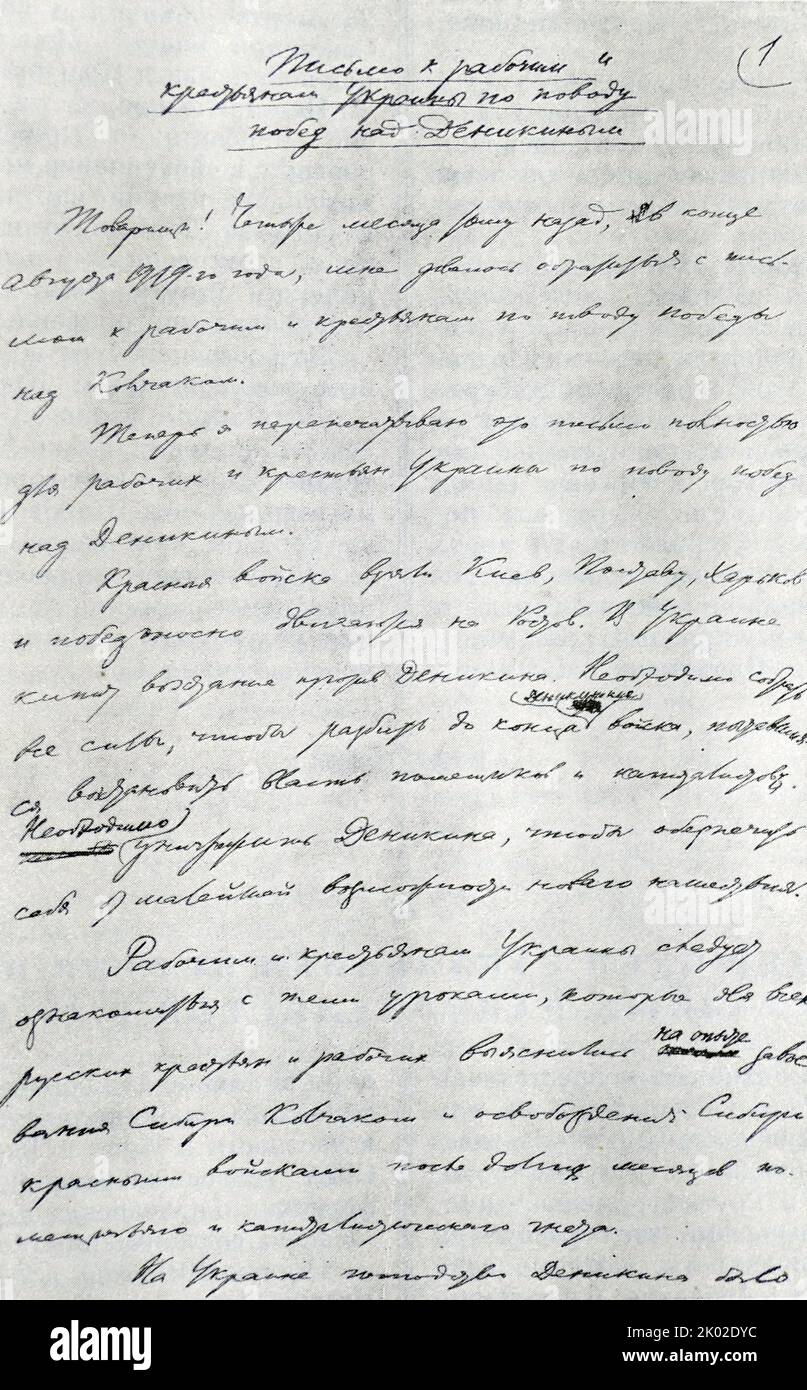 1
Письмо к рабочим и
крестьянам Украины по поводу
побед над Деникиным
Товарищи! Четыре месяца тому назад, в конце
августа 1919-го года, мне довелось обратиться с пись-
мом к рабочим и крестьянам по поводу победы
над Колчаком.
Теперь я перепечатываю это письмо полностью
для рабочих и крестьян Украины по поводу побед
над Деникиным.
Красные войска взяли Киев, Полтаву, Харьков
и победоносно двигаются на Ростов. В Украине
кипит восстание против Деникина. Необходимо собрать
деникинские
все силы, чтобы разбить до конца войска, пытавшие
ся восстановить власть помещиков и капиталистов.
Необходимо
уничтожить Деникина, чтобы обеспечить
себя от малейшей возможности нового нашествия.
Рабочим и крестьянам Украины следует
ознакомиться с теми уроками, которые для всех
на опыте
русских крестьян и рабочих выяснились завое
вания Сибири Колчаком и освобождения Сибири
красными войсками после долгих месяцев по-
мещичьего и капиталистического гнета.
На Украине господство Деникина было
alamy
alamy
alamy
a
a
a
a
a
a
alamy
Image ID: 2K02DYC
www.alamy.com